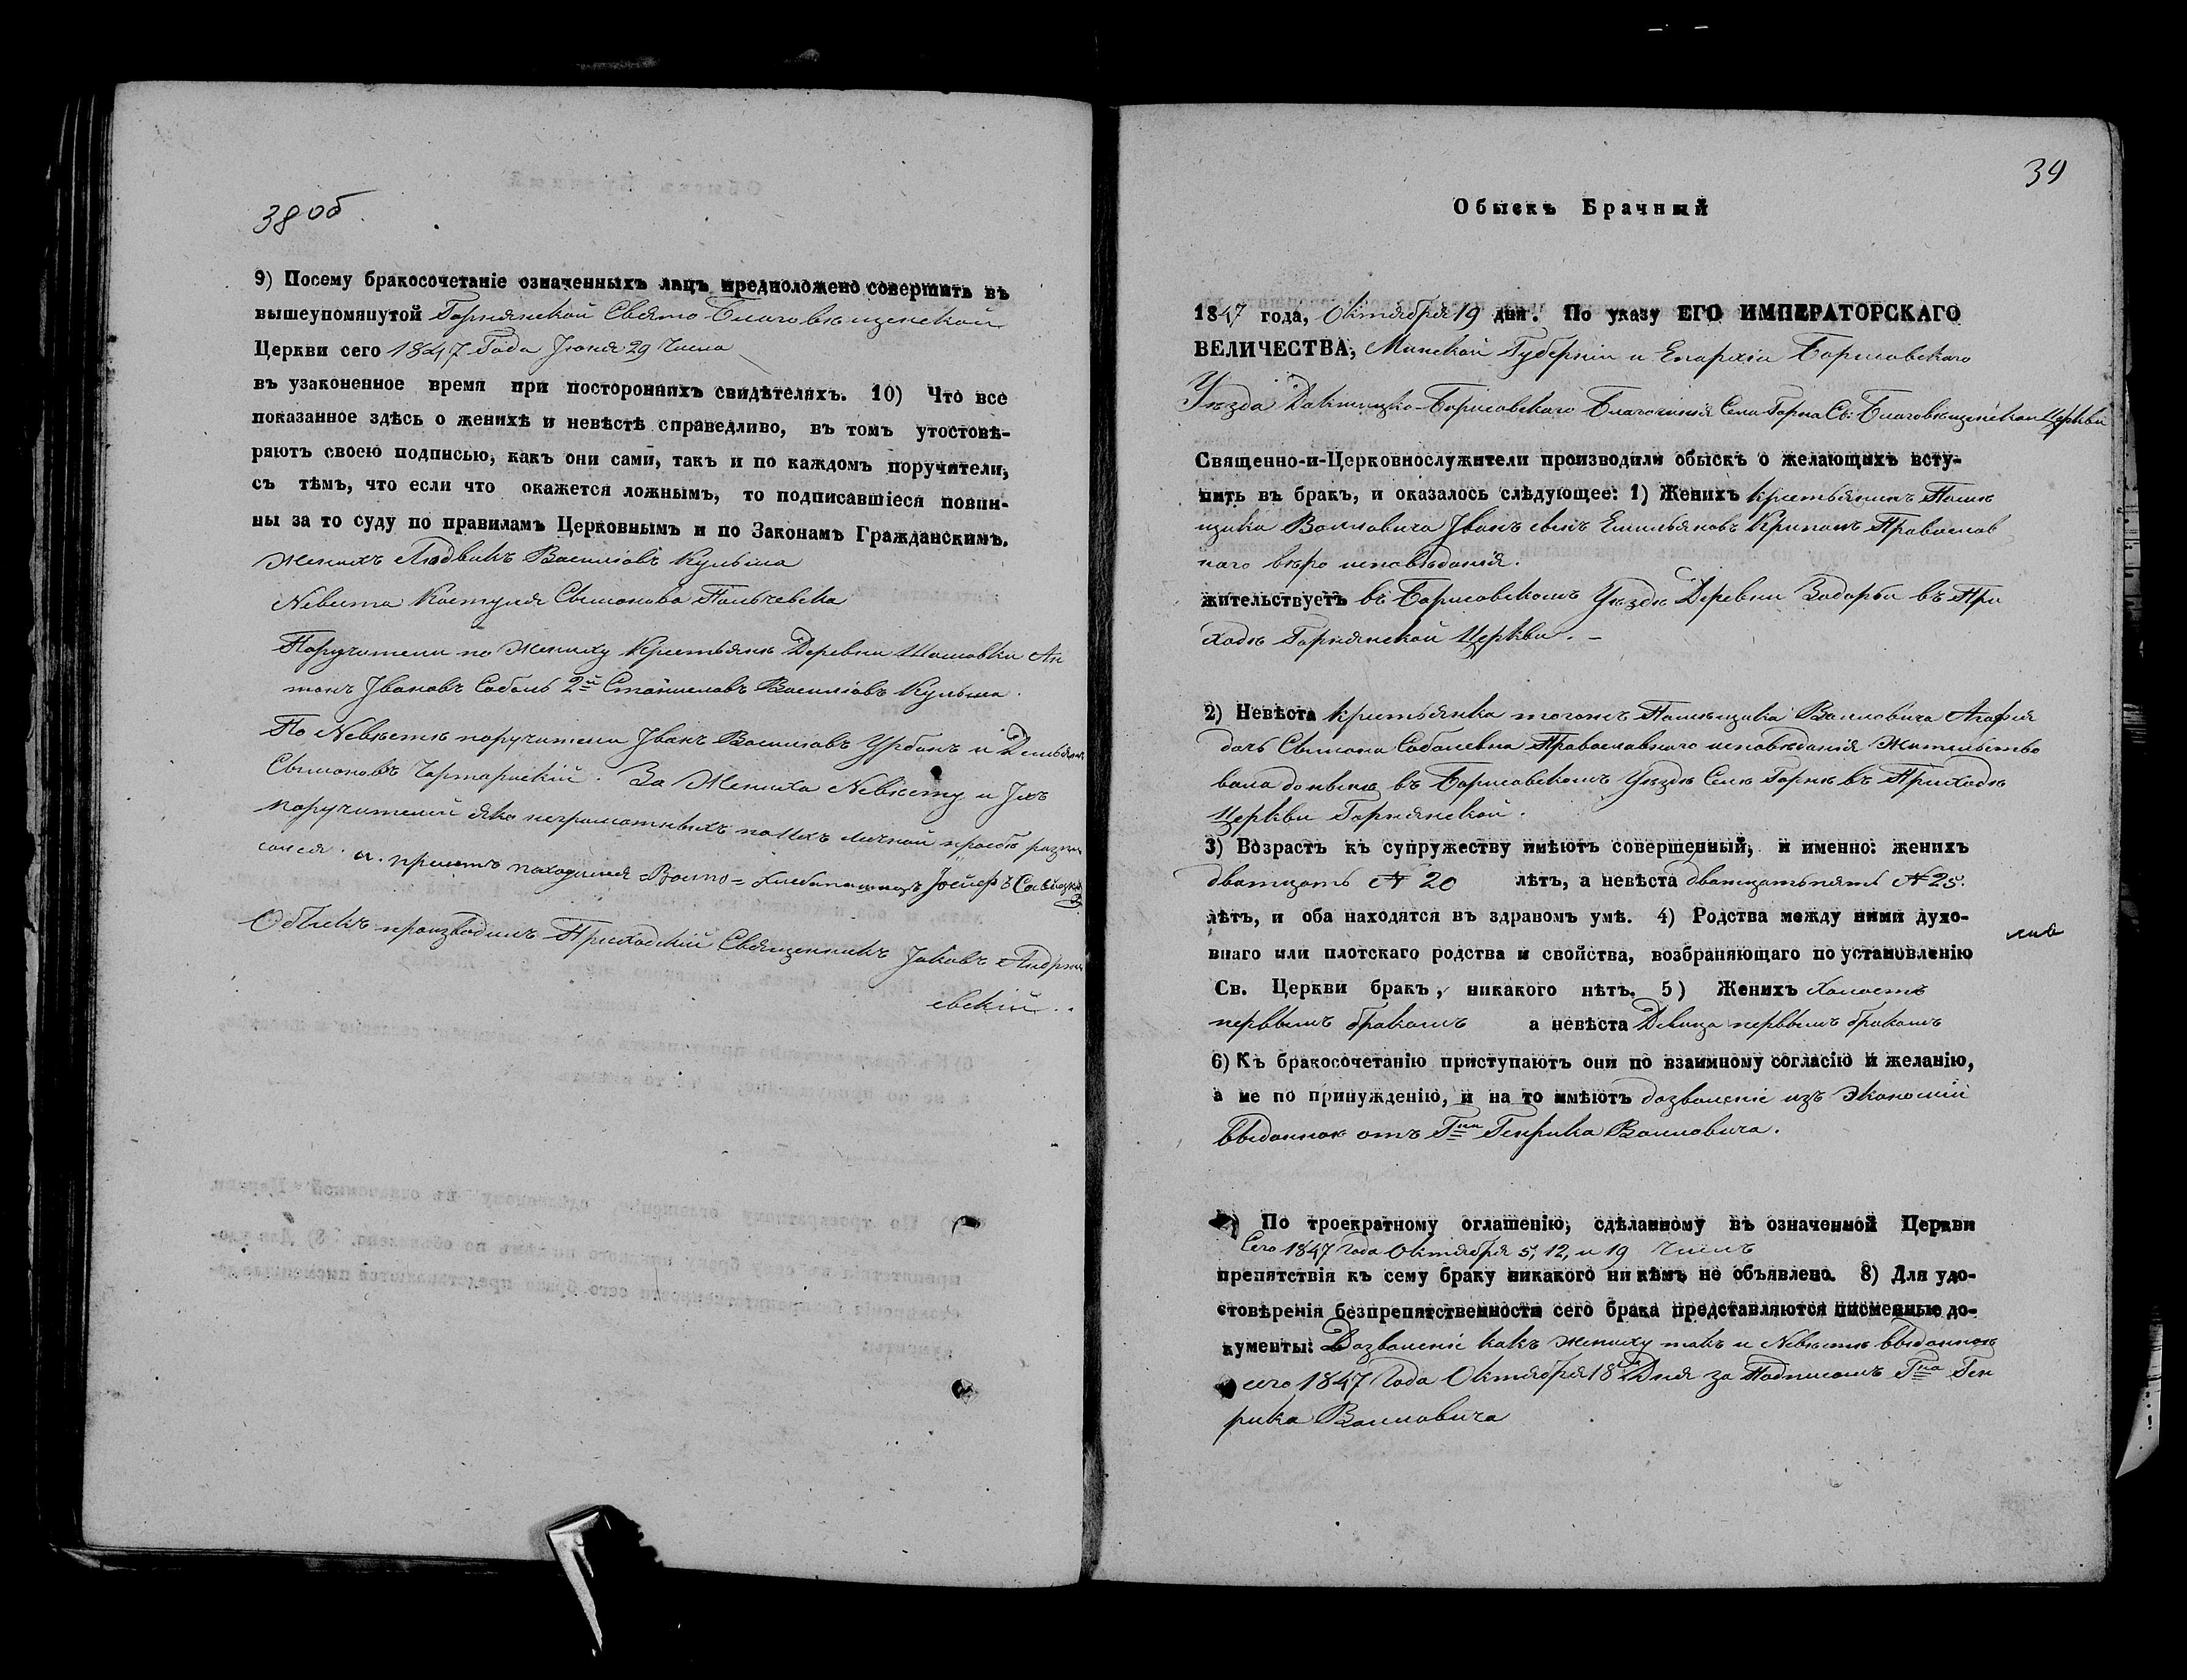 38 об
9) Посему бракосочетаніе означенныхъ лицъ предположено совершить въ
вышеупомянутой Горнянской Свято-Благовѣщенской
Церкви сего 1847 Года Іюня 29 Числа
въ узаконенное время при постороннихъ свидѣтеляхъ. 10) Что все
показанное здѣсь о женихѣ и невѣстѣ справедливо, въ томъ утостовѣ-
ряютъ своею подписью, какъ они сами, такъ и по каждомъ поручители,
съ тѣмъ, что если что окажется ложнымъ, то подписавшіеся повин-
ны за то суду по правиламъ Церковнымъ и по Законамъ Гражданскимъ.
Женихъ Людвикъ Васильовъ Кульша
Nевѣста Костуля Сымонова Пальчевска
Поручители по Жениху Крестьяне Деревни Шиловки Ан
тонъ Ивановъ Соболь 2й Станиславъ Васильовъ Кульша.
По Nевѣстѣ поручители Іванъ Васильовъ Урбанъ и
Сымоновъ Чарторискій. За Жениха Nевѣсту и Ихъ
поручителей яко неграмотныхъ по ихъ личной прозбѣ
Обыскъ производилъ Приходскій Священникъ Іаковъ Андрж
евскій..
39
Обыскъ Брачный
1847 года, Октября 19 дня. По указу ЕГО ИМПЕРАТОРСКАГО
ВЕЛИЧЕСТВА, Минской Губерніи и Епархіи Борисовского
Уѣзда Докшицко-Борисовского Благочинія Села Горна Св: Благовѣщенской Церкви
Священно-и-Церковнослужители производили обыскъ о желающихъ всту-
пить въ бракъ, и оказалось слѣдующее: 1) Женихъ Крестьянинъ Помѣ
щика Воловича Іванъ сынъ Емильяновъ Православ
ного вѣро исповѣданія.
жительствуетъ въ Борисовскомъ Уѣздѣ Деревни Задорьи въ При
ходѣ Горнянской Церкви. –
2) Невѣста Крестьянка тогожъ Помѣщика Воловича Агафія
дочь Сымона Соболевна Православного исповѣданія Жительство
вала донынѣ въ Борисовскомъ Уѣздѣ Селѣ Горнѣ въ Приходѣ
Церкви Горнянской.
3) Возрастъ къ супружеству имѣютъ совершенный, и именно: женихъ
дватцать N 20 лѣтъ, а невѣста дватцать пять N 25.
лѣтъ, и оба находятся въ здравомъ умѣ. 4) Родства между ними духо-
внаго или плотскаго родства и свойства, возбраняющаго по установленію
Св. Церкви бракъ, никакого нѣтъ. 5) Женихъ холостъ
первымъ бракомъ а невѣста Девица первымъ бракомъ
6) Къ бракосочетанію приступаютъ они по взаимному согласію и желанію,
а не по принужденію, и на то имѣютъ дозволеніе изъ Экономіи
выданное отъ Гна Генрика Воловича.
7) По троекратному оглашенію, сдѣланному въ означенной Церкви
Сего 1847 года Октября 5, 12, и 19 Числъ
препятствія къ сему браку никакого ни кѣмъ не объявлено. 8) Для удо-
стовѣренія безпрепятственности сего брака представляются писменные до-
кументы: Дозволеніе какъ жениху такъ и Nевѣстѣ выданное
сего 1847 Года Октября 18 Дня за Подписомъ Гна Ген
рика Воловича